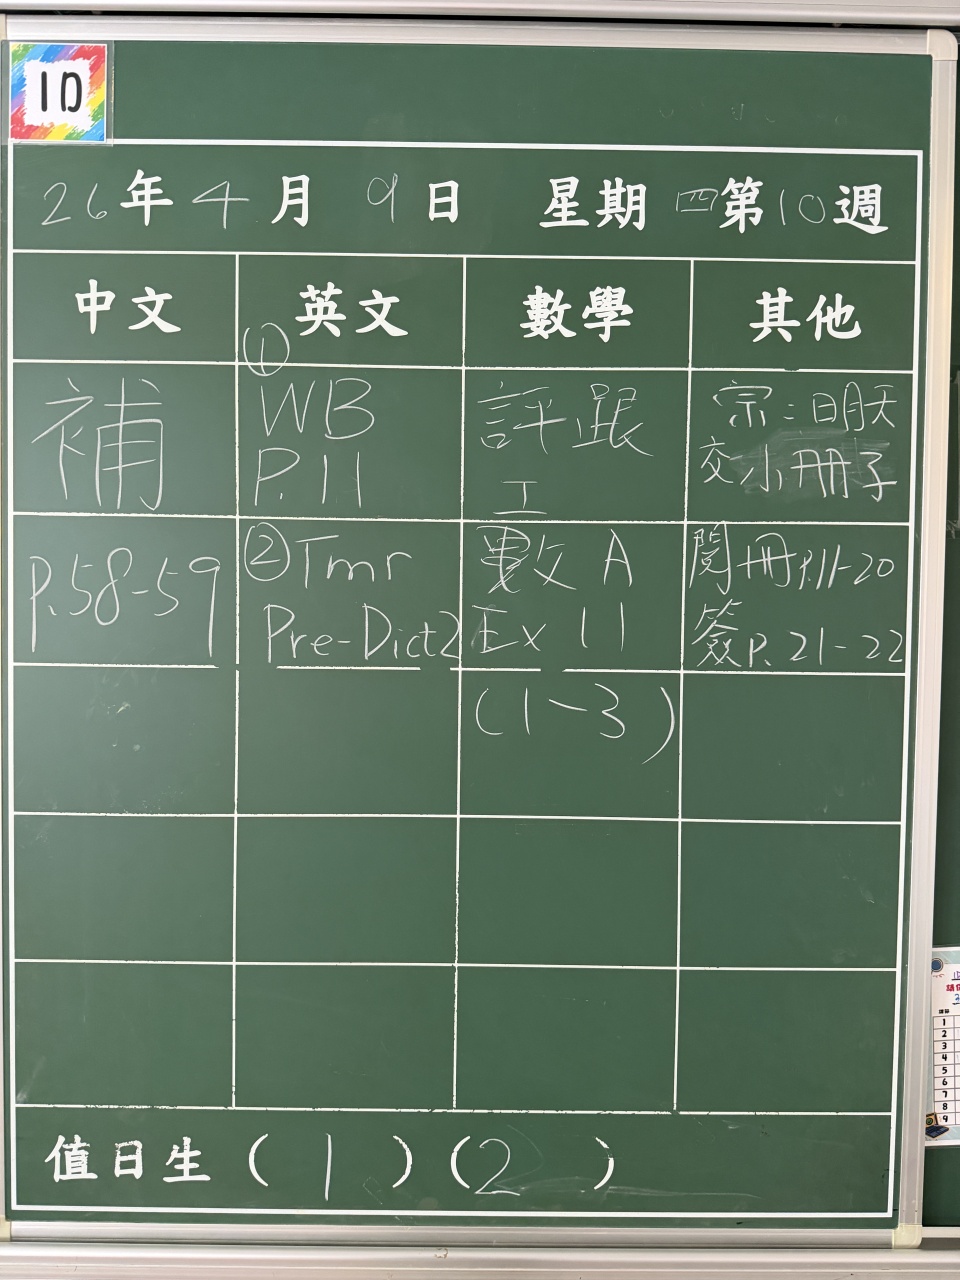 1D
26年4月9日 星期四第10週
中文 英文 數學 其他
補
P.58-59
①
WB
P.11
②Tmr
Pre-Dict2
評跟
工
數A
Ex 11
(1-3)
宗：明天
交小冊子
閱冊P.11-20
簽P.21-22
值日生 ( 1 ) ( 2 )
1
2
3
4
5
6
7
8
9